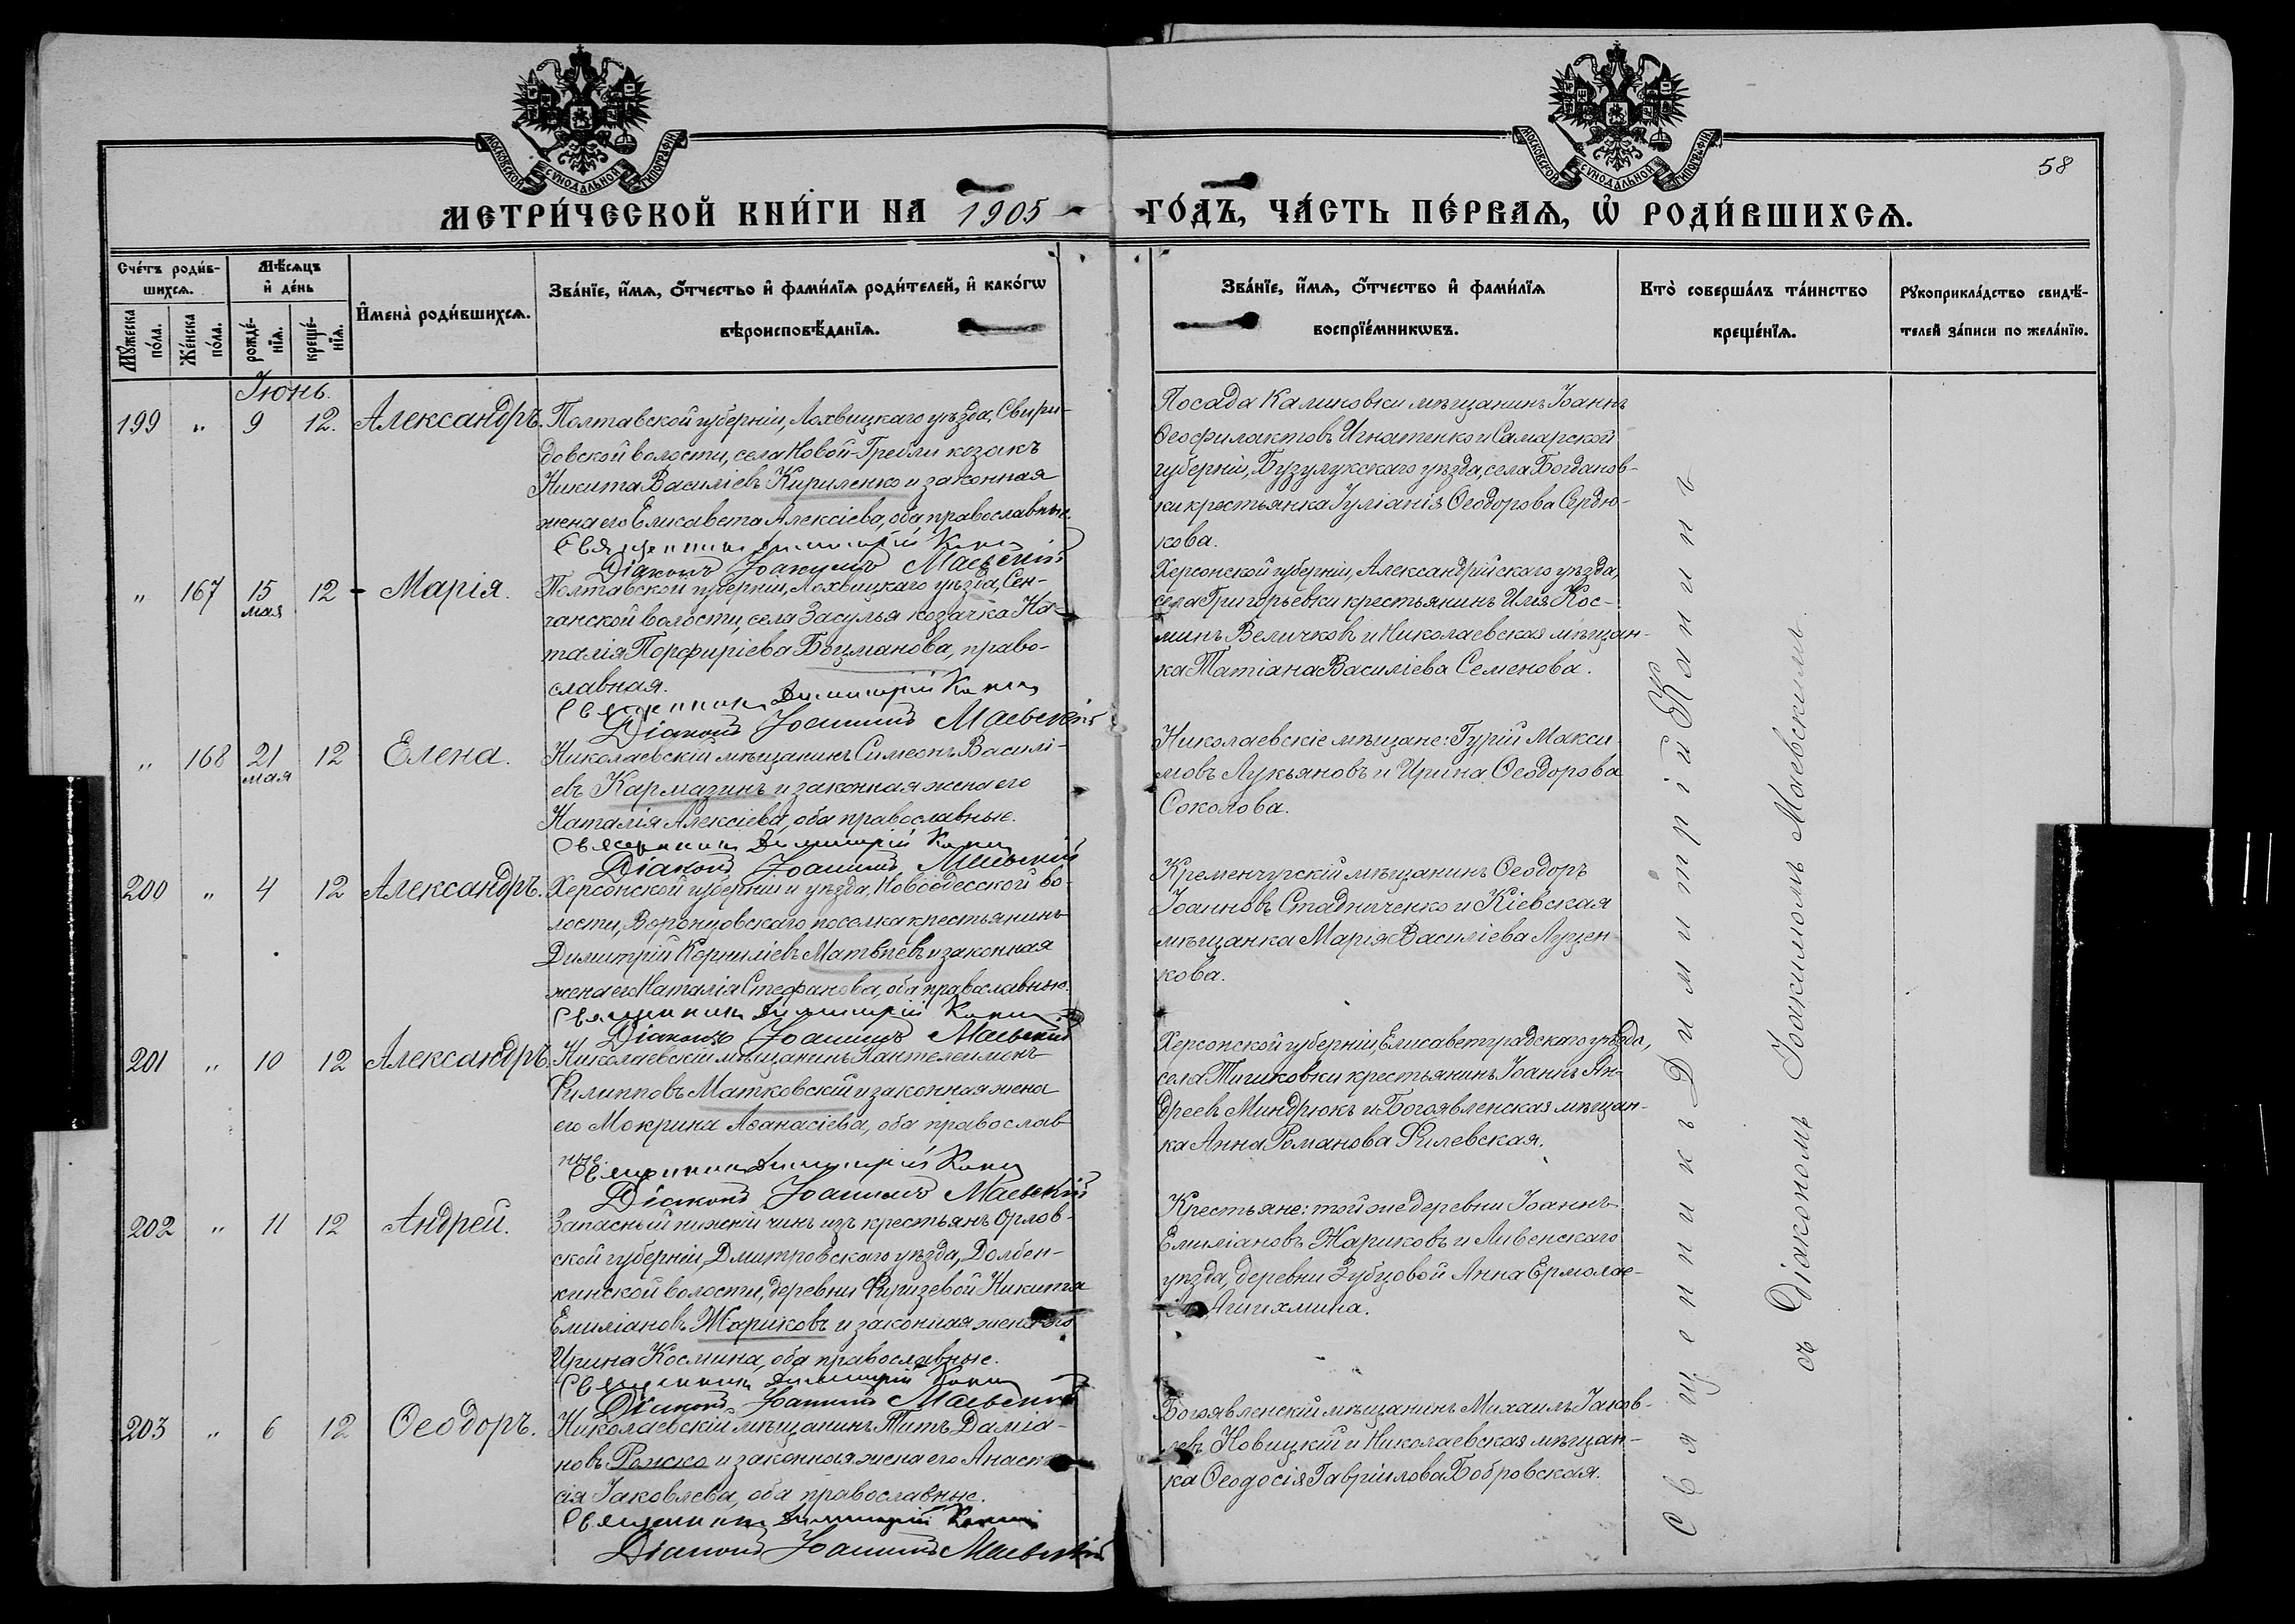 МОСКОВСКОЙ СѴНОДАЛЬНОЙ ТИПОГРАФІИ
МОСКОВСКОЙ СѴНОДАЛЬНОЙ ТИПОГРАФІИ
58
МЕТРИ́ЧЕСКОЙ КНИ́ГИ НА 1905 ГО́ДЪ, ЧА́СТЬ ПЕ́РВАѦ, Ѡ РОДИ́ВШИХСѦ.
Сче́тъ роди́в-
шихсѧ.
Мѣ́сѧцъ
и҆ де́нь
Мꙋ́жеска
по́ла.
Же́нска
по́ла.
рожде́-
нїѧ.
креще́-
нїѧ.
И҆мена̀ роди́вшихсѧ.
Зва́нїе, и҆́мѧ, ѻ҆́тчество и҆ фами́лїѧ роди́телей, и҆ како́гѡ
вѣроисповѣ́данїѧ.
Зва́нїе, и҆́мѧ, ѻ҆́тчество и҆ фами́лїѧ
воспрїе́мникѡвъ.
Кто̀ соверша́лъ та́инство
креще́нїѧ.
Рꙋкоприкла́дство свидѣ́-
телей за́писи по жела́нїю.
Іюнь.
199 " 9 12. Александръ.
Полтавской губерніи, Лохвицкаго уѣзда, Свири-
довской волости, села Новой-Гребли козакъ
Никита Василіевъ Кириленко и законная
жена его Елисавета Алексіева, оба православные.
Священникъ Димитрій
Діаконъ Іоакимъ Маевскій
Посада Калиновки мѣщанинъ Іоаннъ
Ѳеофилактовъ Игнатенко и Самарской
губерніи, Бузулукскаго уѣзда, села Богданов-
ки крестьянка Іуліанія Ѳеодорова Сердю-
кова.
" 167 15 мая 12 Марія.
Полтавской губерніи, Лохвицкаго уѣзда, Сен-
чанской волости, села Засулья козачка На-
талія Порфиріева Боцманова, право-
славная.
Священникъ Димитрій
Діаконъ Іоакимъ Маевскій
Херсонской губерніи, Александрійскаго уѣзда,
села Григорьевки крестьянинъ Илія Кос-
минъ Величковъ и Николаевская мѣщан-
ка Татіана Василіева Семенова.
" 168 21 мая 12 Елена.
Николаевскій мѣщанинъ Симеонъ Василі-
евъ Кармазинъ и законная жена его
Наталія Алексіева, оба православные.
Священникъ Димитрій
Діаконъ Іоакимъ Маевскій
Николаевскіе мѣщане: Гурій Макси-
мовъ Лукьяновъ и Ирина Ѳеодорова
Соколова.
200 " 4 12 Александръ.
Херсонской губерніи и уѣзда, Новоодесской во-
лости, Воронцовскаго поселка крестьянинъ
Димитрій Корниліевъ Матвѣевъ и законная
жена его Наталія Стефанова, оба православные.
Священникъ Димитрій
Діаконъ Іоакимъ Маевскій
Кременчугскій мѣщанинъ Ѳеодоръ
Іоанновъ Стадниченко и Кіевская
мѣщанка Марія Василіева Луцен-
кова.
201 " 10 12 Александръ.
Николаевскій мѣщанинъ Пантелеимонъ
Филипповъ Матковскій и законная жена
его Мокрина Аѳанасіева, оба православ-
ные.
Священникъ Димитрій
Діаконъ Іоакимъ Маевскій
Херсонской губерніи, Елисаветградскаго уѣзда,
села Тишковки крестьянинъ Іоаннъ Ан-
дреевъ Миндрюкъ и Богоявленская мѣщан-
ка Анна Романова Филевская.
202 " 11 12 Андрей.
Запасный нижній чинъ изъ крестьянъ Орлов-
ской губерніи, Дмитровскаго уѣзда, Долбен-
кинской волости, деревни Никита
Емиліановъ Жариковъ и законная жена его
Ирина Космина, оба православные.
Священникъ Димитрій
Діаконъ Іоакимъ Маевскій
Крестьяне: той же деревни Іоаннъ
Емиліановъ Жариковъ и Ливенскаго
уѣзда, деревни Зубцовой Анна Ермолае-
ва
203 " 6 12 Ѳеодоръ.
Николаевскій мѣщанинъ Титъ Даміа-
новъ Рожко и законная жена его Анаста-
сія Іаковлева, оба православные.
Священникъ Димитрій
Діаконъ Іоакимъ Маевскій
Богоявленскій мѣщанинъ Михаилъ Іаков-
левъ Новицкій и Николаевская мѣщан-
ка Ѳеодосія Гавріилова Бобровская.
Священникъ Димитрій
съ Діакономъ Іоакимомъ Маевскимъ